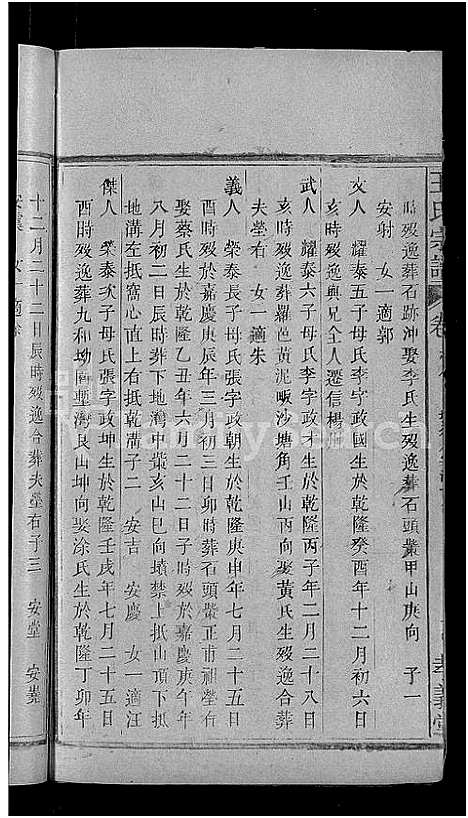 王氏宗譜 卷
孝義堂
時歿逸葬石跡沖娶李氏生歿逸葬石頭叢甲山庚向 子一
安射 女一適郭
文人 耀泰五子母氏李字政國生於乾隆癸酉年十二月初六日
亥時歿逸與兄全人遷信楊
武人 耀泰六子母氏李字政才生於乾隆丙子年二月二十八日
亥時歿逸葬羅邑黃泥畈沙塘角壬山丙向娶黃氏生歿逸合葬
夫塋右 女一適朱
義人 榮泰長子母氏張字政朝生於乾隆庚申年七月二十五日
酉時歿於嘉慶庚辰年三月初三日卯時葬石頭叢正甫祖塋右
娶蔡氏生於乾隆乙丑年六月二十二日子時歿於嘉慶庚午年
八月初二日辰時葬下地灣中叢亥山巳向墳禁上抵山頂下抵
地溝左抵窩心直上右抵乾溝子二 安吉 安慶 女一適汪
傑人 榮泰次子母氏張字政坤生於乾隆壬戌年七月二十五日
酉時歿逸葬九種坳圍壟灣艮山坤向娶涂氏生於乾隆丁卯年
十二月二十二日辰時歿逸合葬夫塋右子三 安堂 安堯
女一適
Familysearch